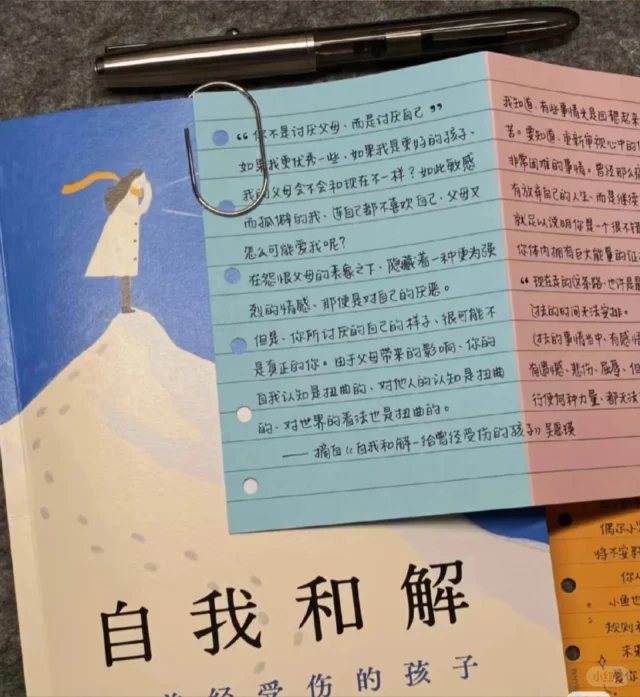 “你不是讨厌父母、而是讨厌自己”
如果我更优秀一些、如果我是更好的孩子、
我的父母会不会和现在不一样？如此敏感
而孤僻的我、连自己都不喜欢自己、父母又
怎么可能爱我呢？
在怨恨父母的表象之下、隐藏着一种更为强
烈的情感、那便是对自己的厌恶。
但是、你所讨厌的自己的样子、很可能不
是真正的你。由于父母带来的影响、你的
自我认知是扭曲的、对他人的认知是扭曲
的、对世界的看法也是扭曲的。
——摘自《自我和解—给曾经受伤的孩子》吴恩瑛
我知道、有些事情光是回想起来
苦。要知道、重新审视心中的
非常困难的事情。曾经那么
有放弃自己的人生、而是继续
就足以说明你是一个很不错
你体内拥有巨大能量的证
“现在走的这条路、也许是最
过去的时间无法安排。
过去的事情当中、有感
有遗憾、悲伤、屈辱、但
行使何种力量、都无法
偶尔小
将不安
你
小鱼也
规则
未来
爱你
自我和解
曾经受伤的孩子
小红书